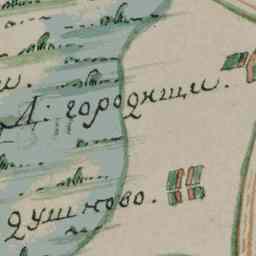 Д: городищи.
душково.